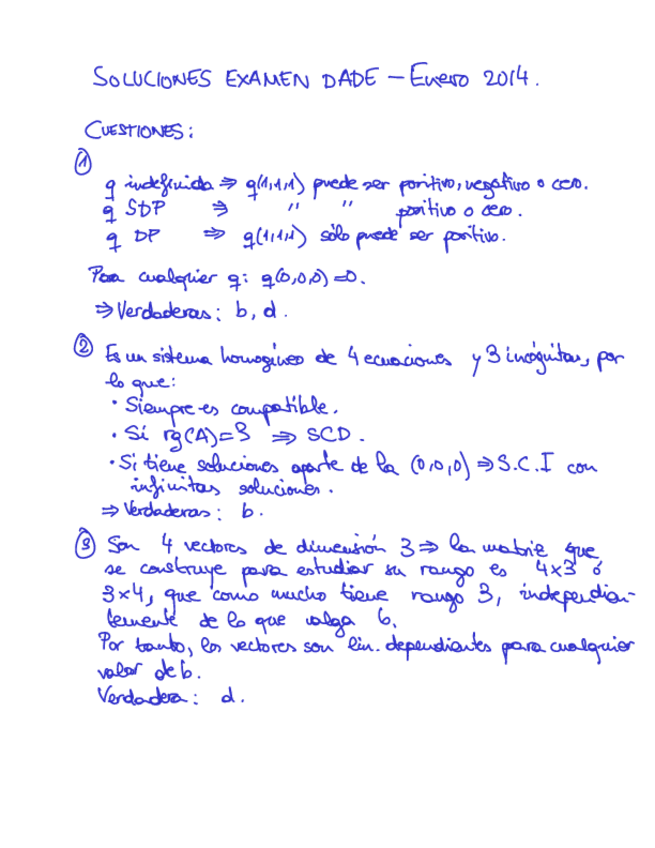 SOLUCIONES EXAMEN DADE – Enero 2014.
CUESTIONES:
①
q indefinida ⇒ q(1,1,1) puede ser positivo, negativo o cero.
q SDP ⇒ " " positivo o cero.
q DP ⇒ q(1,1,1) sólo puede ser positivo.
Para cualquier q: q(0,0,0)=0.
⇒ Verdaderas: b, d.
② Es un sistema homogéneo de 4 ecuaciones y 3 incógnitas, por
lo que:
• Siempre es compatible.
• Si rg(A)=3 ⇒ SCD.
• Si tiene soluciones aparte de la (0,0,0) ⇒ S.C.I con
infinitas soluciones.
⇒ Verdaderas: b.
③ Son 4 vectores de dimensión 3 ⇒ la matriz que
se construye para estudiar su rango es 4x3 ó
3x4, que como mucho tiene rango 3, independien-
temente de lo que valga b.
Por tanto, los vectores son lin. dependientes para cualquier
valor de b.
Verdadera: d.